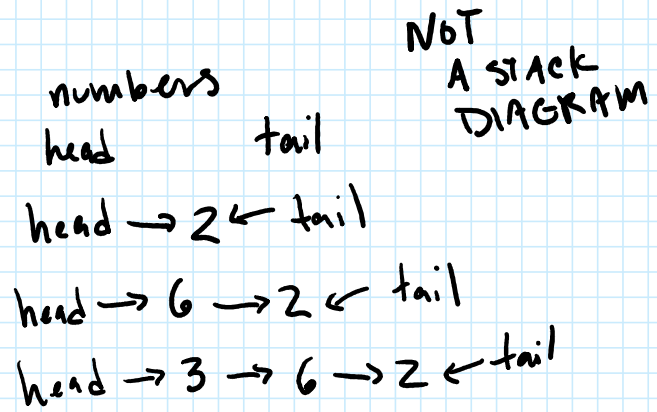 NOT
A STACK
DIAGRAM
numbers
head tail
head → 2 ← tail
head → 6 → 2 ← tail
head → 3 → 6 → 2 ← tail